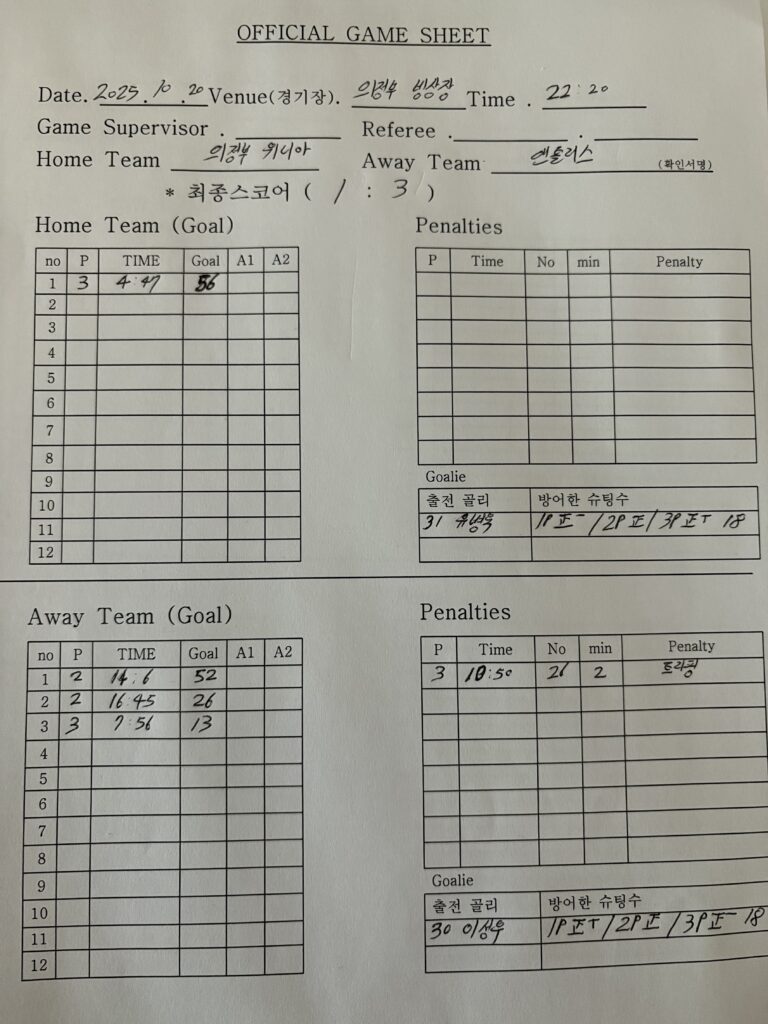 OFFICIAL GAME SHEET
Date. 2025. 10 .20 Venue(경기장). 의정부 빙상장 Time . 22:20
Game Supervisor . Referee . .
Home Team 의정부 위니아 Away Team 앤솔러스 (확인서명)
* 최종스코어 ( 1 : 3 )
Home Team (Goal)
no P TIME Goal A1 A2
1 3 4:47 56
2
3
4
5
6
7
8
9
10
11
12
Penalties
P Time No min Penalty
Goalie
출전 골리 방어한 슈팅수
31 유병욱 1P 正一 / 2P 正 / 3P 正T 18
Away Team (Goal)
no P TIME Goal A1 A2
1 2 14:6 52
2 2 16:45 26
3 3 7:56 13
4
5
6
7
8
9
10
11
12
Penalties
P Time No min Penalty
3 10:50 26 2 트리핑
Goalie
출전 골리 방어한 슈팅수
30 이성우 1P 正T / 2P 正 / 3P 正一 18